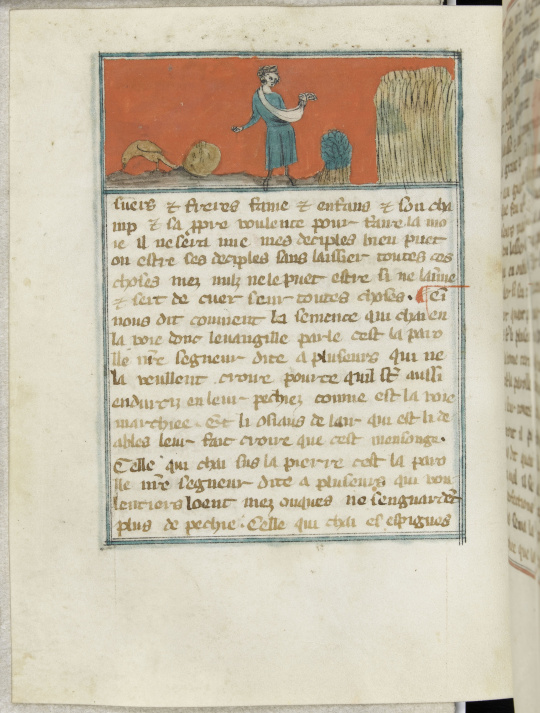 suers ⁊ freres fame ⁊ enfans ⁊ son cha
mp ⁊ sa ppre voulente pour faire la mo
ie il ne sera mie mes deciples bien puet
on estre ses deciples sans laissier toutes ces
choses mez nulz ne le puet estre si ne laime
⁊ sert de cuer seur toutes choses. Ci
nous dit comment la semence qui chai en
la voie donc levangille parle cest la paro
lle nre segneur dite a pluseurs qui ne
la veullent croire pource quil st aussi
endurciz en leur pechiez comme est la voie
marchiee. Et li oisiaus de lair qui est li de
ables leur fait croire que cest mensonge.
Celle qui chai sus la pierre cest la paro
lle nre segneur dite a pluseurs qui vou
lentiers loent mez onques ne senguardet
plus de pechie. Celle qui chai es espigues